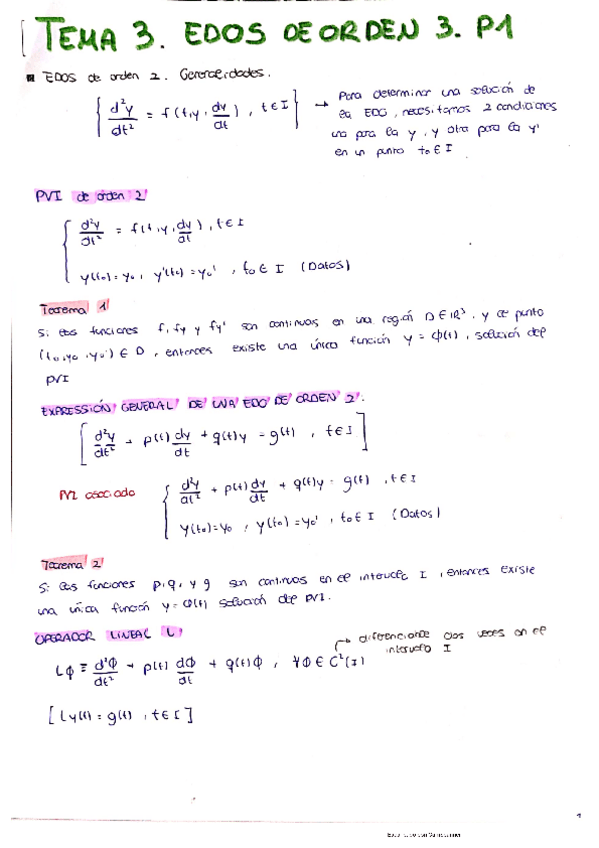 TEMA 3. EDOS DE ORDEN 3. P1
EDOS de orden 2. Generalidades.
{ d²y/dt² = f(t,y,dy/dt), t∈I } → Para determinar una solución de
la EDO, necesitamos 2 condiciones
una para la y, y otra para la y'
en un punto t₀∈I
PVI de orden 2
d²y/dt² = f(t,y,dy/dt), t∈I
y(t₀)=y₀, y'(t₀)=y₀', t₀∈I (Datos)
Teorema 1
Si las funciones f, fy y fy' son continuas en una región D∈ℝ³, y el punto
(t₀,y₀,y₀')∈D, entonces existe una única función y=Φ(t), solución del
PVI
EXPRESSIÓN GENERAL DE UNA EDO DE ORDEN 2.
[ d²y/dt² + p(t) dy/dt + q(t)y = g(t), t∈I ]
PVI asociado
d²y/dt² + p(t) dy/dt + q(t)y = g(t), t∈I
y(t₀)=y₀, y(t₀)=y₀', t₀∈I (Datos)
Teorema 2
Si las funciones p, q, y g son continuas en el intervalo I, entonces existe
una única función y=Φ(t) solución del PVI.
OPERADOR LINEAL L
→ diferenciable dos veces en el
intervalo I
LΦ ≡ d²Φ/dt² + p(t) dΦ/dt + q(t)Φ, ∀Φ∈C²(I)
[Ly(t) = g(t), t∈I]
1